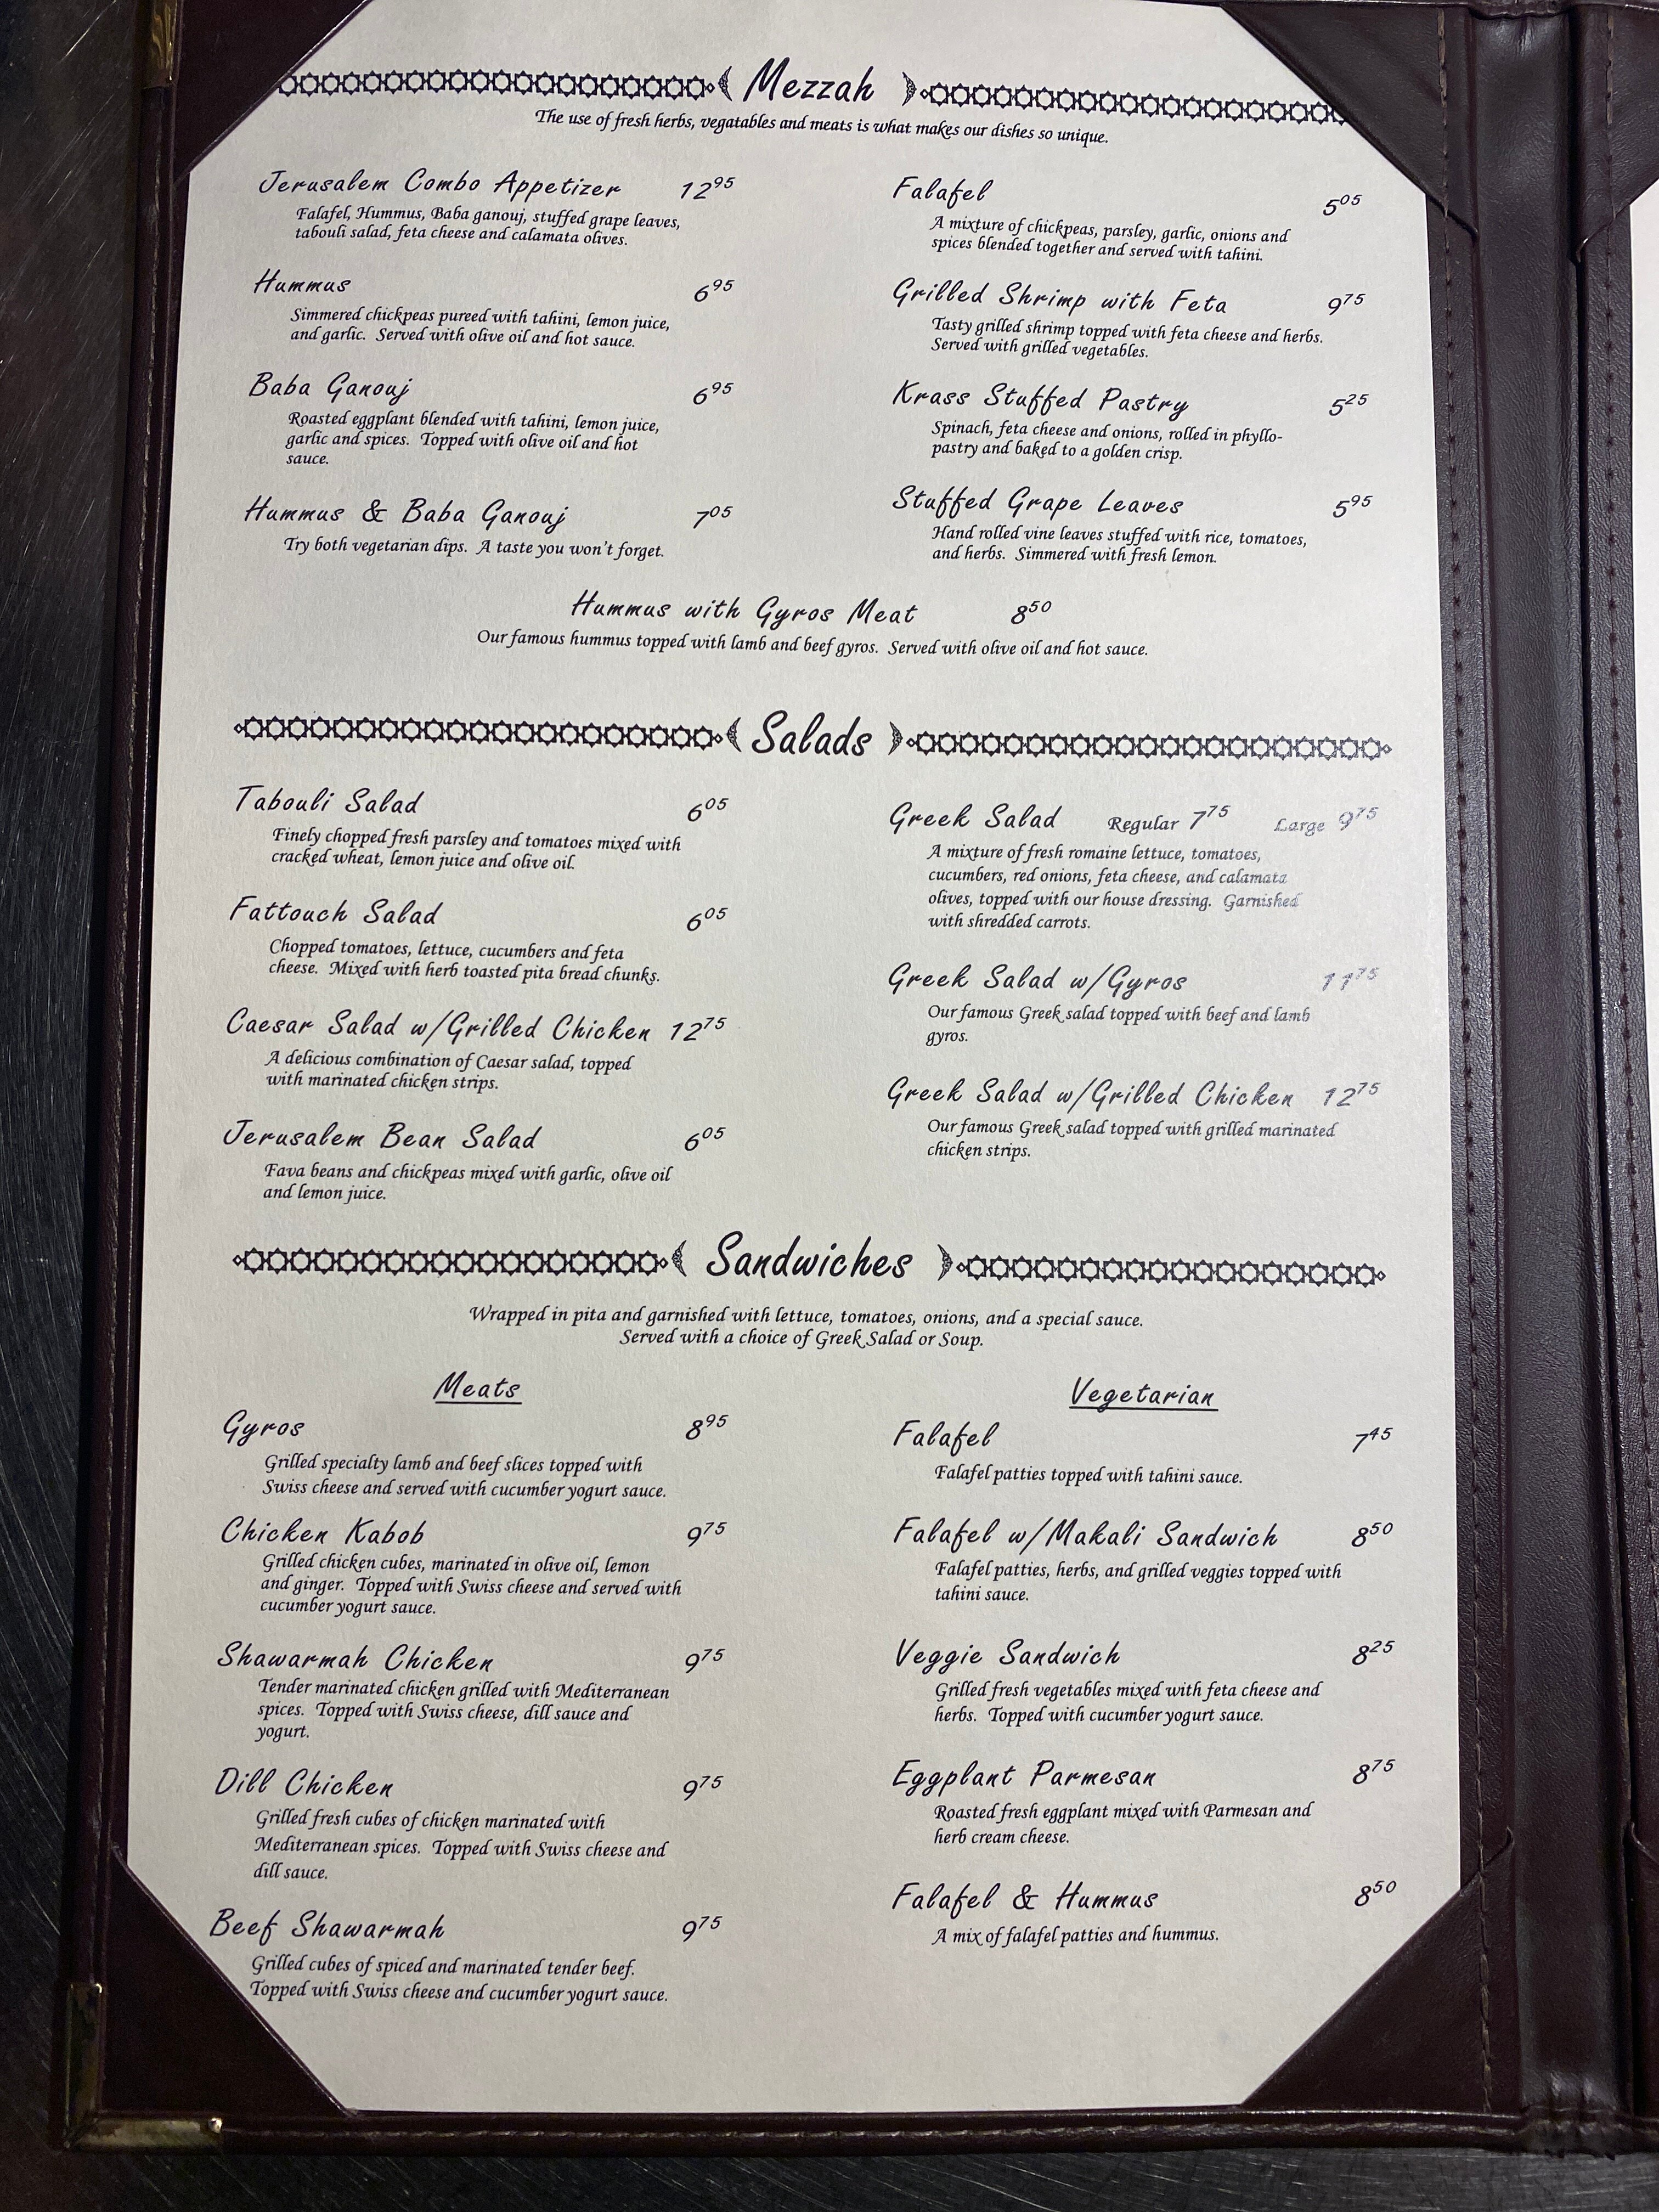 Mezzah
The use of fresh herbs, vegatables and meats is what makes our dishes so unique.
Jerusalem Combo Appetizer 12 95
Falafel, Hummus, Baba ganouj, stuffed grape leaves,
tabouli salad, feta cheese and calamata olives.
Hummus 6 95
Simmered chickpeas pureed with tahini, lemon juice,
and garlic. Served with olive oil and hot sauce.
Baba Ganouj 6 95
Roasted eggplant blended with tahini, lemon juice,
garlic and spices. Topped with olive oil and hot
sauce.
Hummus & Baba Ganouj 7 05
Try both vegetarian dips. A taste you won't forget.
Falafel 5 05
A mixture of chickpeas, parsley, garlic, onions and
spices blended together and served with tahini.
Grilled Shrimp with Feta 9 75
Tasty grilled shrimp topped with feta cheese and herbs.
Served with grilled vegetables.
Krass Stuffed Pastry 5 25
Spinach, feta cheese and onions, rolled in phyllo-
pastry and baked to a golden crisp.
Stuffed Grape Leaves 5 95
Hand rolled vine leaves stuffed with rice, tomatoes,
and herbs. Simmered with fresh lemon.
Hummus with Gyros Meat 8 50
Our famous hummus topped with lamb and beef gyros. Served with olive oil and hot sauce.
Salads
Tabouli Salad 6 05
Finely chopped fresh parsley and tomatoes mixed with
cracked wheat, lemon juice and olive oil.
Fattouch Salad 6 05
Chopped tomatoes, lettuce, cucumbers and feta
cheese. Mixed with herb toasted pita bread chunks.
Caesar Salad w/Grilled Chicken 12 75
A delicious combination of Caesar salad, topped
with marinated chicken strips.
Jerusalem Bean Salad 6 05
Fava beans and chickpeas mixed with garlic, olive oil
and lemon juice.
Greek Salad Regular 7 75 Large 9 75
A mixture of fresh romaine lettuce, tomatoes,
cucumbers, red onions, feta cheese, and calamata
olives, topped with our house dressing. Garnished
with shredded carrots.
Greek Salad w/Gyros 11 75
Our famous Greek salad topped with beef and lamb
gyros.
Greek Salad w/Grilled Chicken 12 75
Our famous Greek salad topped with grilled marinated
chicken strips.
Sandwiches
Wrapped in pita and garnished with lettuce, tomatoes, onions, and a special sauce.
Served with a choice of Greek Salad or Soup.
Meats
Gyros 8 95
Grilled specialty lamb and beef slices topped with
Swiss cheese and served with cucumber yogurt sauce.
Chicken Kabob 9 75
Grilled chicken cubes, marinated in olive oil, lemon
and ginger. Topped with Swiss cheese and served with
cucumber yogurt sauce.
Shawarmah Chicken 9 75
Tender marinated chicken grilled with Mediterranean
spices. Topped with Swiss cheese, dill sauce and
yogurt.
Dill Chicken 9 75
Grilled fresh cubes of chicken marinated with
Mediterranean spices. Topped with Swiss cheese and
dill sauce.
Beef Shawarmah 9 75
Grilled cubes of spiced and marinated tender beef.
Topped with Swiss cheese and cucumber yogurt sauce.
Vegetarian
Falafel 7 45
Falafel patties topped with tahini sauce.
Falafel w/Makali Sandwich 8 50
Falafel patties, herbs, and grilled veggies topped with
tahini sauce.
Veggie Sandwich 8 25
Grilled fresh vegetables mixed with feta cheese and
herbs. Topped with cucumber yogurt sauce.
Eggplant Parmesan 8 75
Roasted fresh eggplant mixed with Parmesan and
herb cream cheese.
Falafel & Hummus 8 50
A mix of falafel patties and hummus.